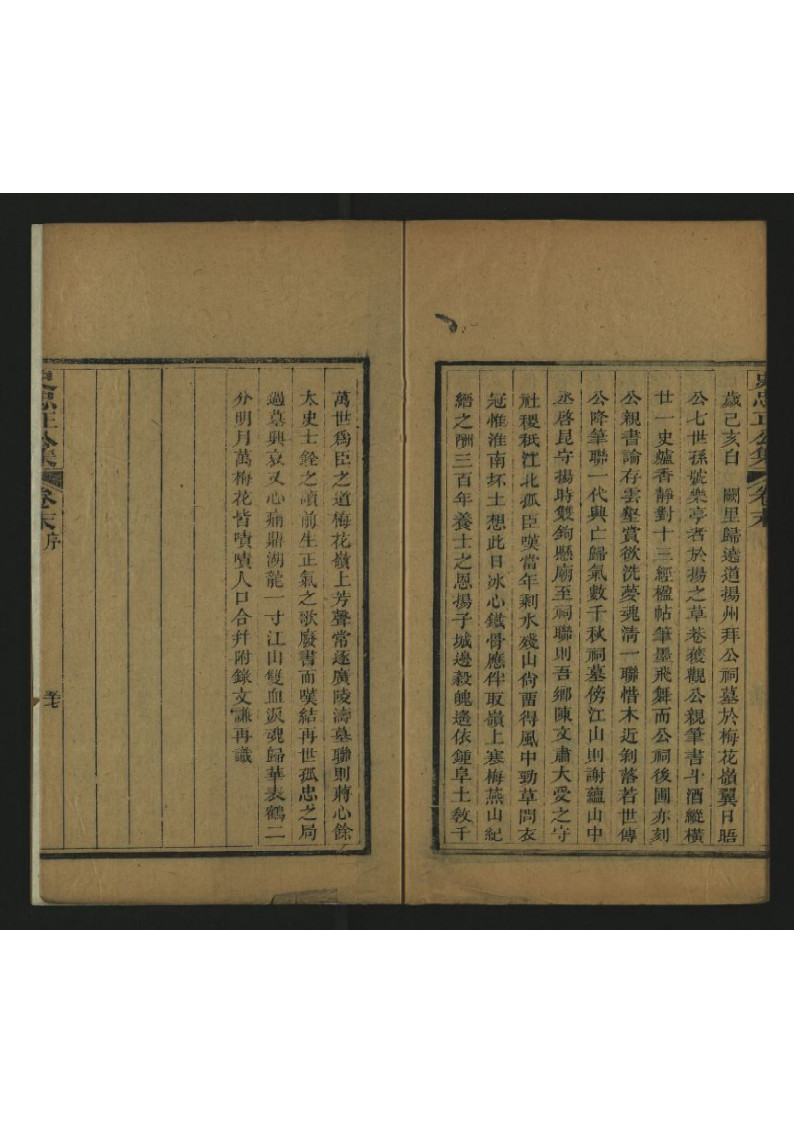 歲己亥自　闕里歸遶道揚州拜公祠墓於梅花嶺翼日晤
公七世孫號樂亭者於揚之草巷獲觀公親筆書斗酒縱橫
廿一史爐香靜對十三經楹帖筆墨飛舞而公祠後圃亦刻
公親書諭存雲壑賞欲洗夢魂清一聯惜木近剝落若世傳
公降筆聯一代興亡歸氣數千秋祠墓傍江山則謝蘊山中
丞啓昆守揚時雙鉤懸廟至祠聯則吾鄉陳文肅大受之守
社稷祇江北孤臣嘆當年剩水殘山尙畱得風中勁草問衣
冠惟淮南坏土想此日冰心鐵骨應伴取嶺上寒梅燕山紀
縉之酬三百年養士之恩揚子城邊毅魄遙依鍾阜土敎千
萬世爲臣之道梅花嶺上芳聲常逐廣陵濤墓聯則蔣心餘
太史士銓之讀前生正氣之歌廢書而嘆結再世孤忠之局
過墓興哀又心痛鼎湖龍一寸江山雙血淚魂歸華表鶴二
分明月萬梅花皆嘖嘖人口合幷附錄文謙再識
史忠正公集　卷末序
史忠正公集　卷末